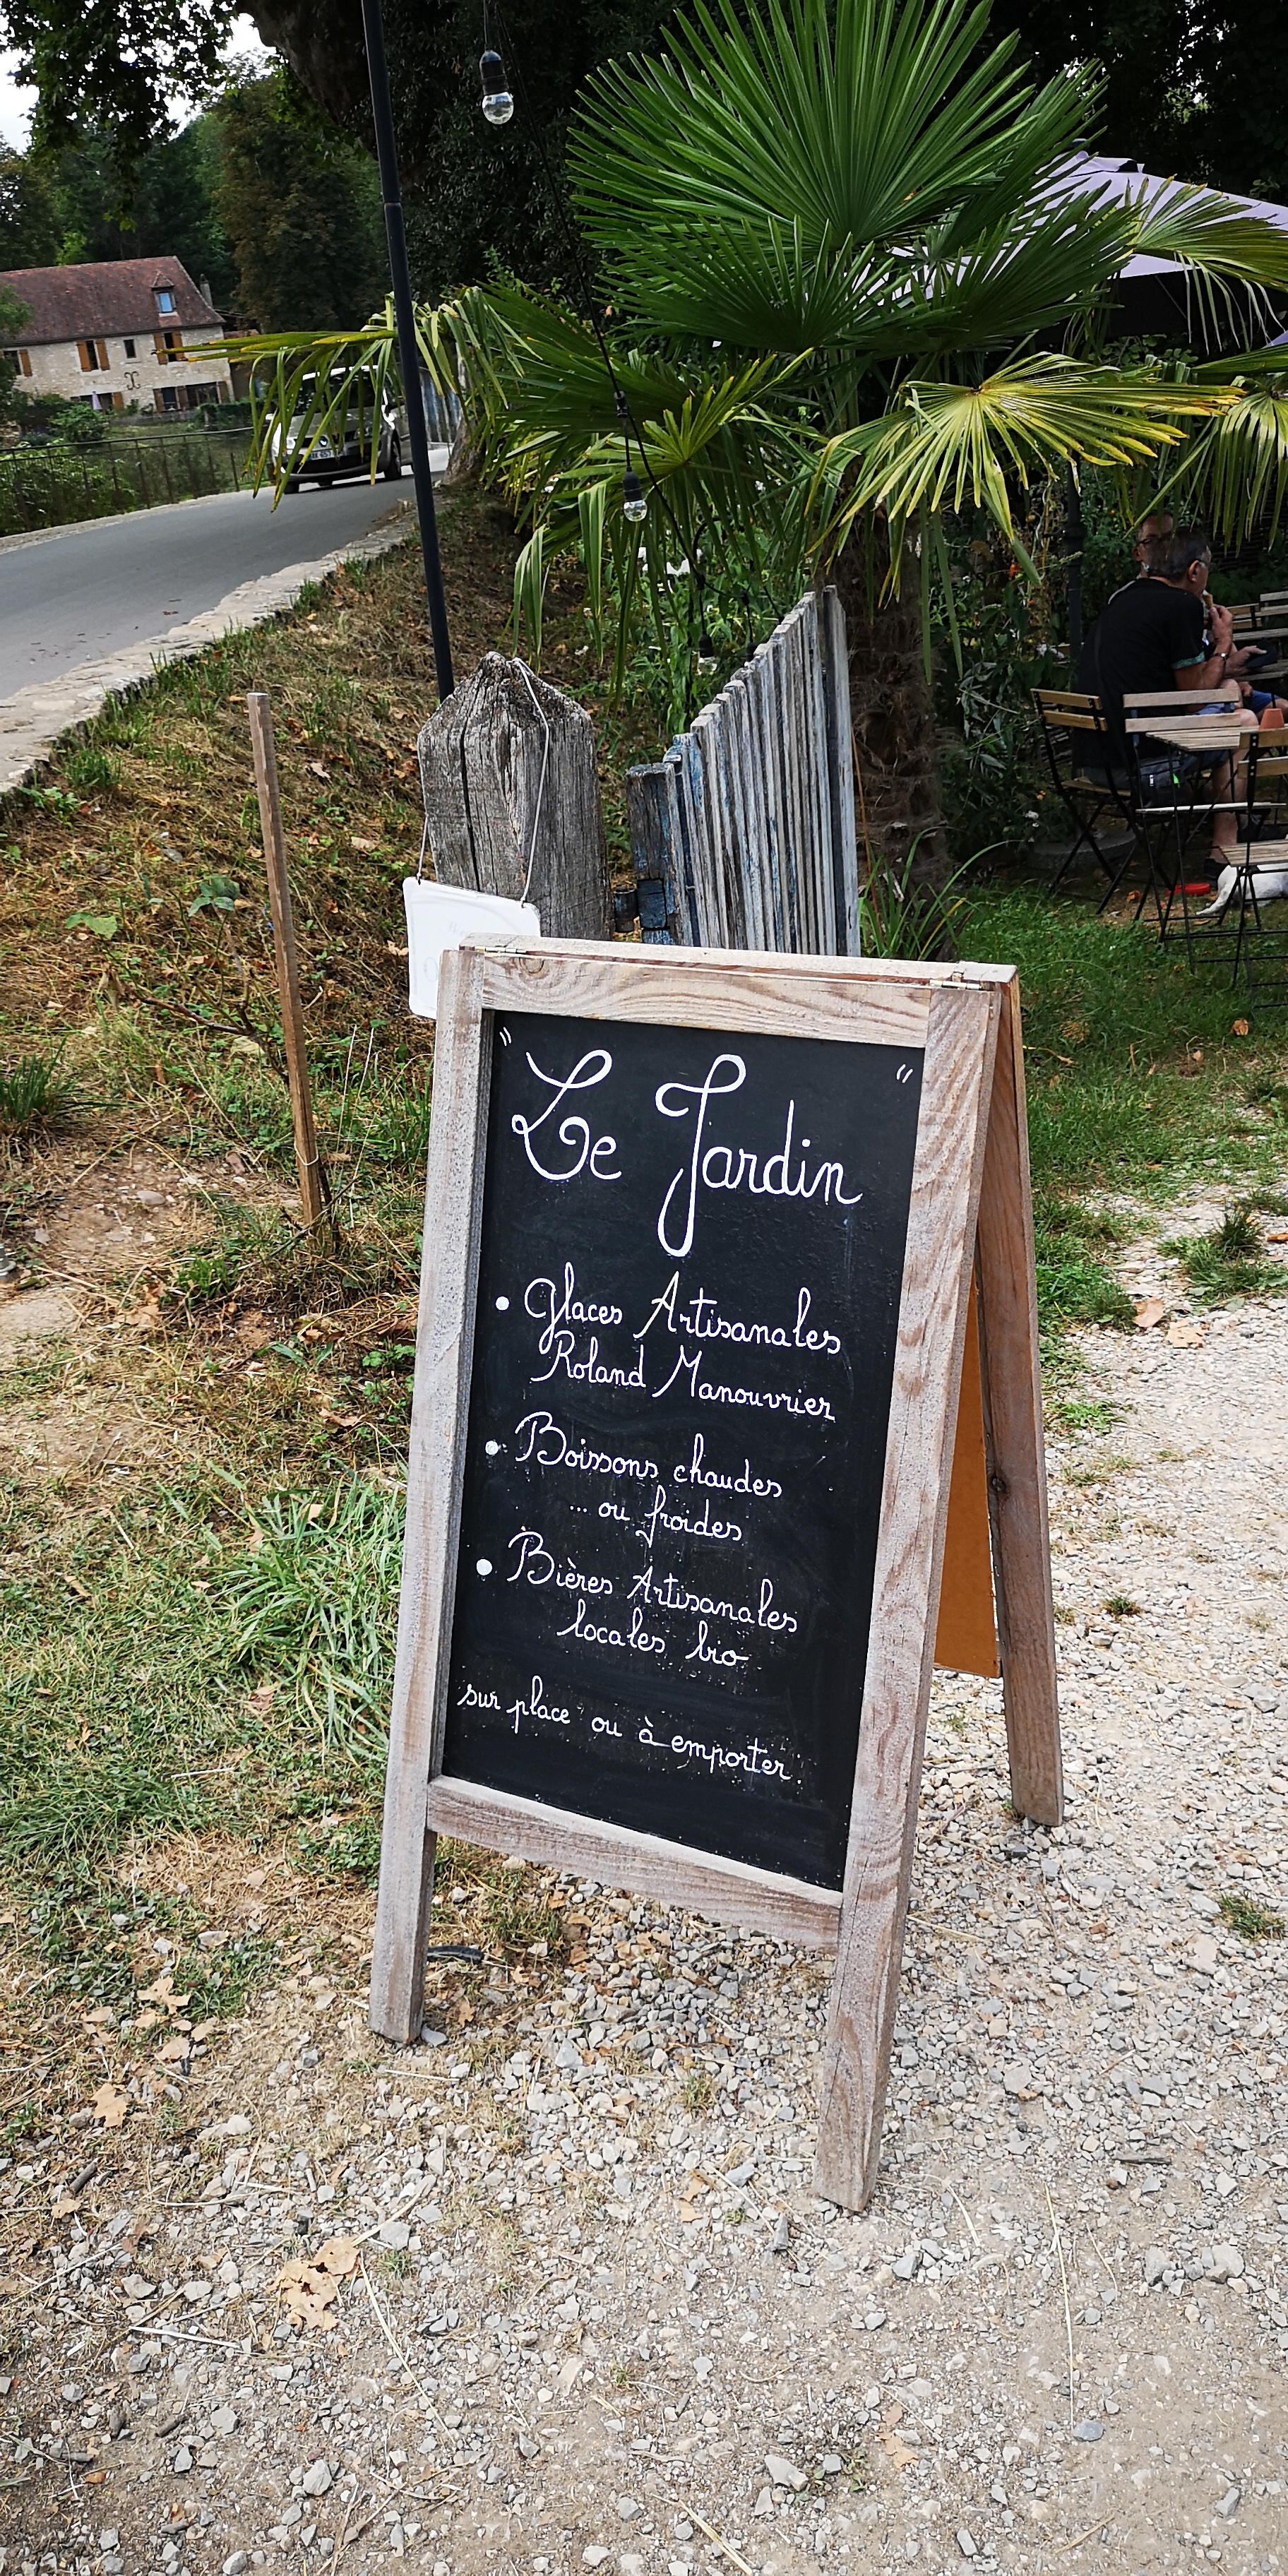 " Le Jardin "
• Glaces Artisanales
Roland Manouvrier
• Boissons chaudes
... ou froides
• Bières Artisanales
locales bio
sur place ou à emporter.